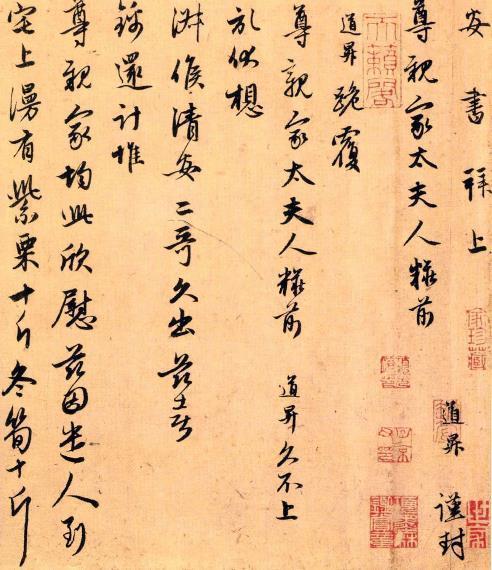 安書拜上
道昇謹封
尊親家太夫人糚前
道昇跪覆
尊親家太夫人糚前 道昇久不上
伏想
淋候清安二哥久出茲喜
錦還計惟
尊親家均此欣慰茲因遣人到
宅上謾有紫栗十斤冬筍十斤
天籟閣